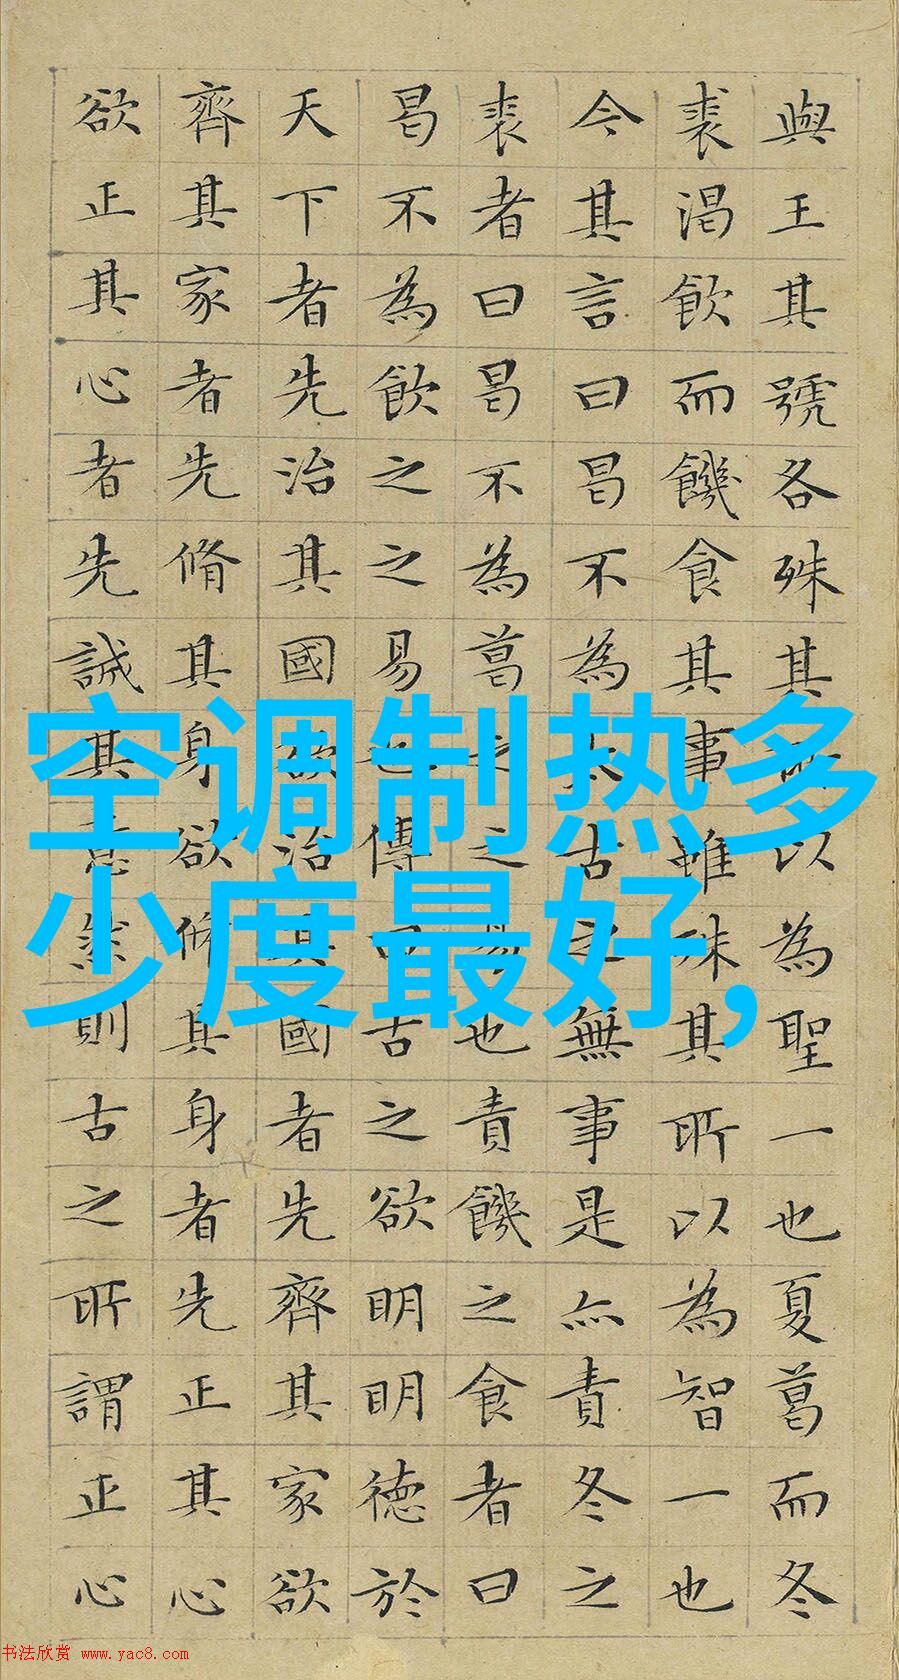 與王其號各殊其所以為聖一也夏葛而冬
裘渴飲而饑食其事雖殊其所以為智一也
今其言曰曷不為太古之無事是亦責冬之
裘者曰曷不為葛之之易也責饑之食者曰
曷不為飲之之易也傳曰古之欲明明德於
天下者先治其國欲治其國者先齊其家欲
齊其家者先脩其身欲脩其身者先正其心
欲正其心者先誠其意然則古之所謂正心
空调制热多
少度最好,
书法欣赏 www.yac8.com